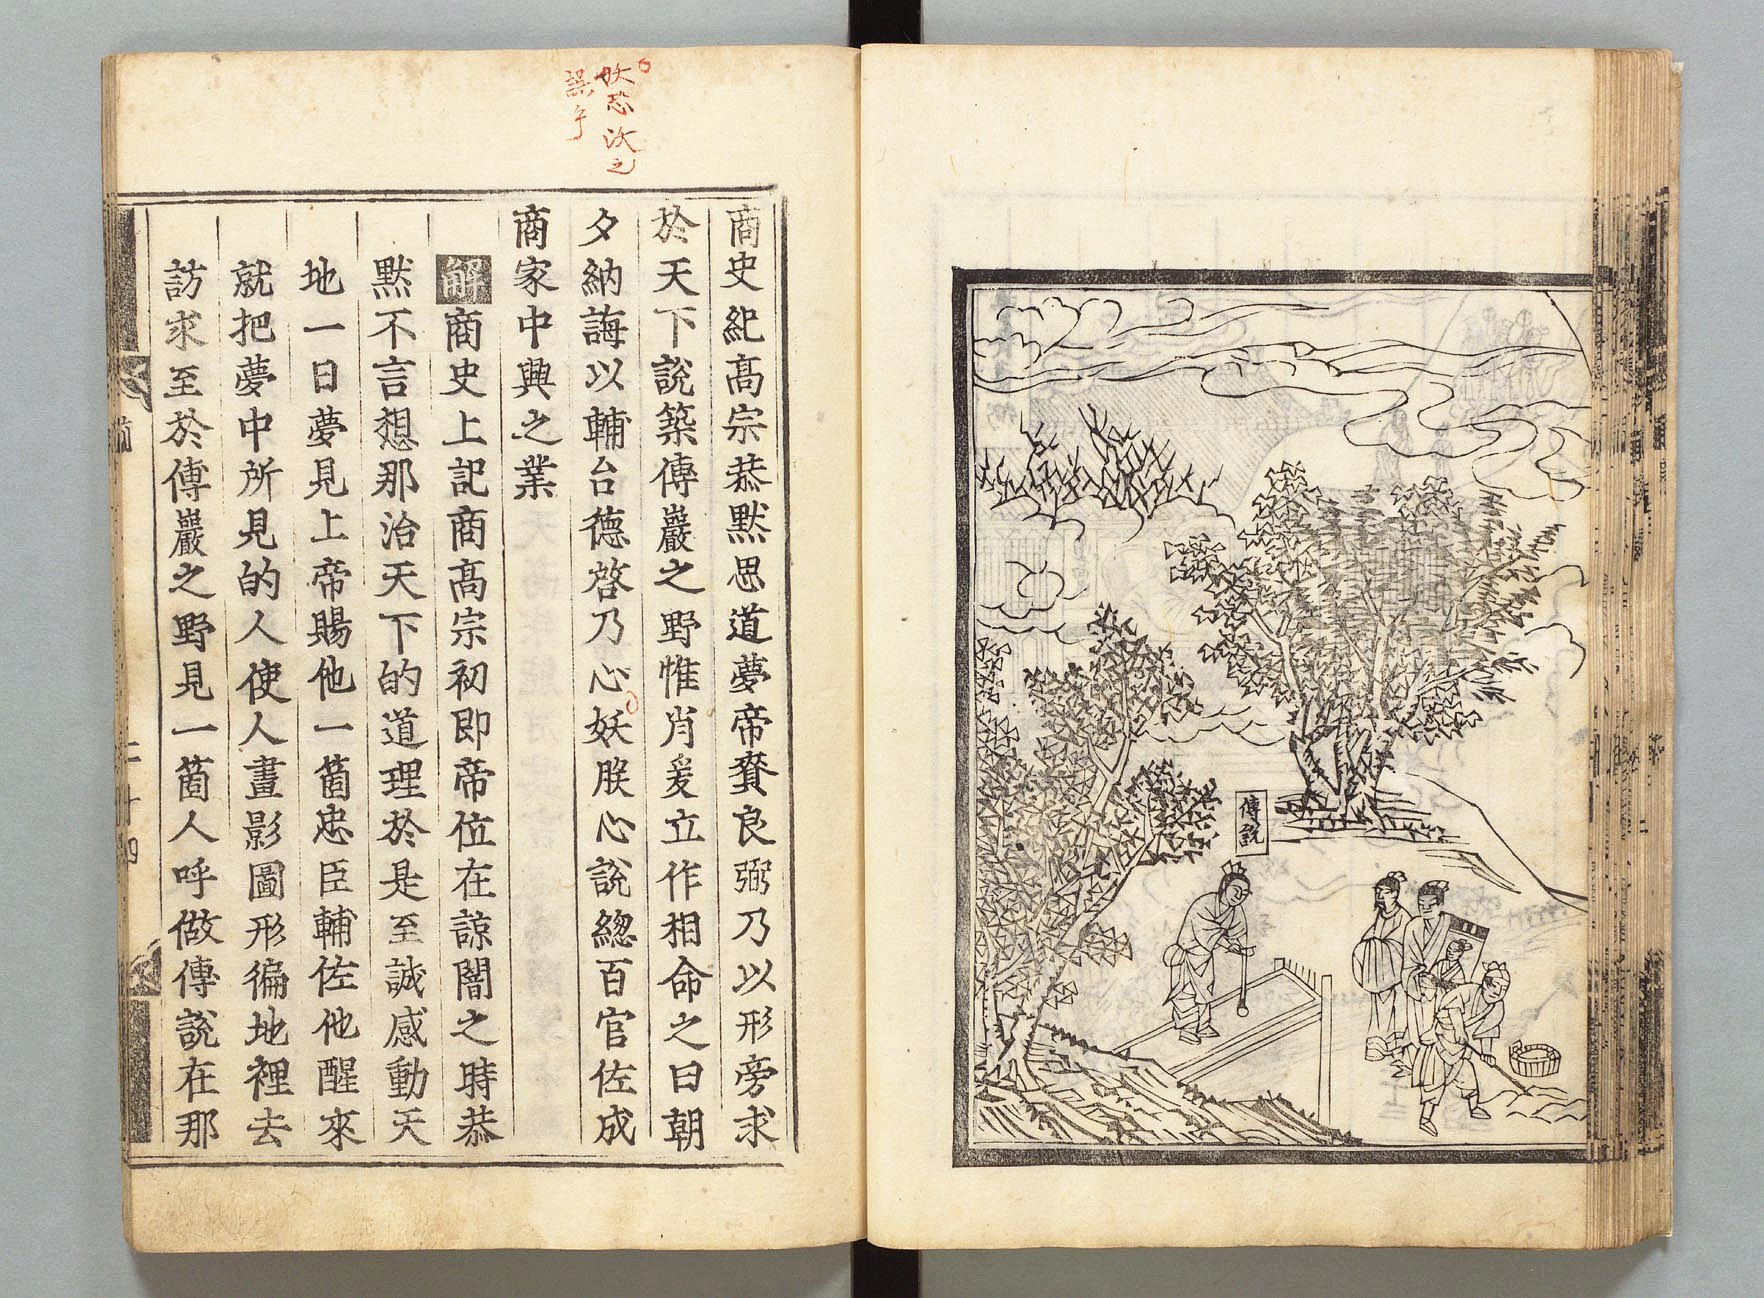 傅說
妖恐汝之
誤乎
商史紀高宗恭默思道夢帝賚良弼乃以形旁求
於天下說築傅巖之野惟肖爰立作相命之曰朝
夕納誨以輔台德啓乃心妖朕心說總百官佐成
商家中興之業
解商史上記商高宗初即帝位在諒闇之時恭
默不言想那治天下的道理於是至誠感動天
地一日夢見上帝賜他一箇忠臣輔佐他醒來
就把夢中所見的人使人畫影圖形徧地裡去
訪求至於傅巖之野見一箇人呼做傅說在那
二十四